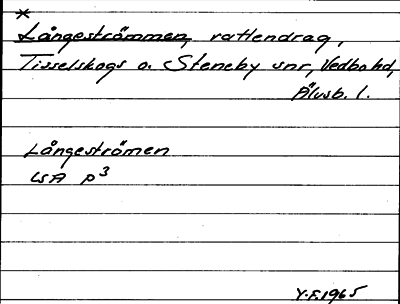 *
Långeströmmen, vattendrag,
Tisselskogs o. Steneby snr, Vedbo hd,
Älvsb. l.
Långeströmen
LSA P3
Y.F. 1965